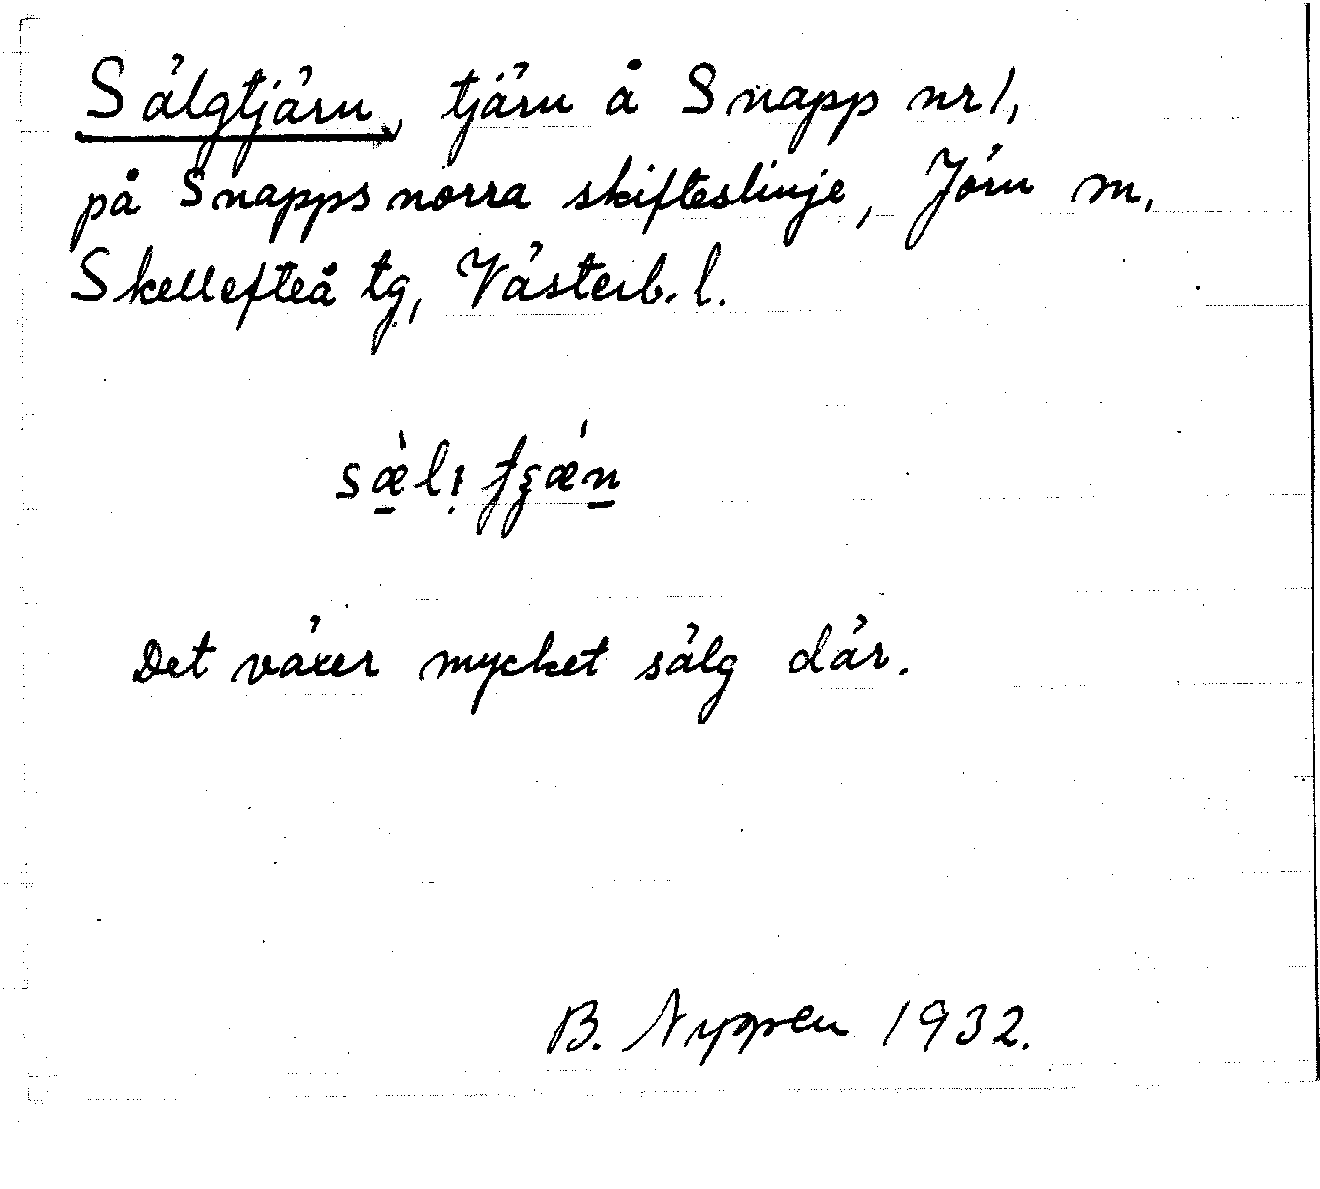 Sälgtjärn, tjärn å Snapp nr 1,
på Snapps norra skifteslinje, Jörn m,
Skellefteå tg, Västerb. l.
Det växer mycket sälg där.
B. 1932.